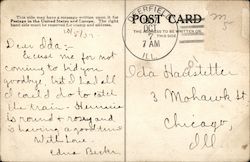 This side may have a message written upon it for
Postage in the United States and Canada. The right
hand side must be reserved for stamp and address.
POST CARD
THE ADDRESS TO BE WRITTEN ON
THIS SIDE
ERFIEL
OCT
7
7 AM
ILL
10/5/07
Dear Ida:-
Excuse me for not
coming to bid you
goodbye, but I had all
I could do to catch
the train. Hermine
is round & rosy and
is having a good time
With love,
Edna Becker
Ida Hadstetter
3 Mohawk St
Chicago,
Ill.